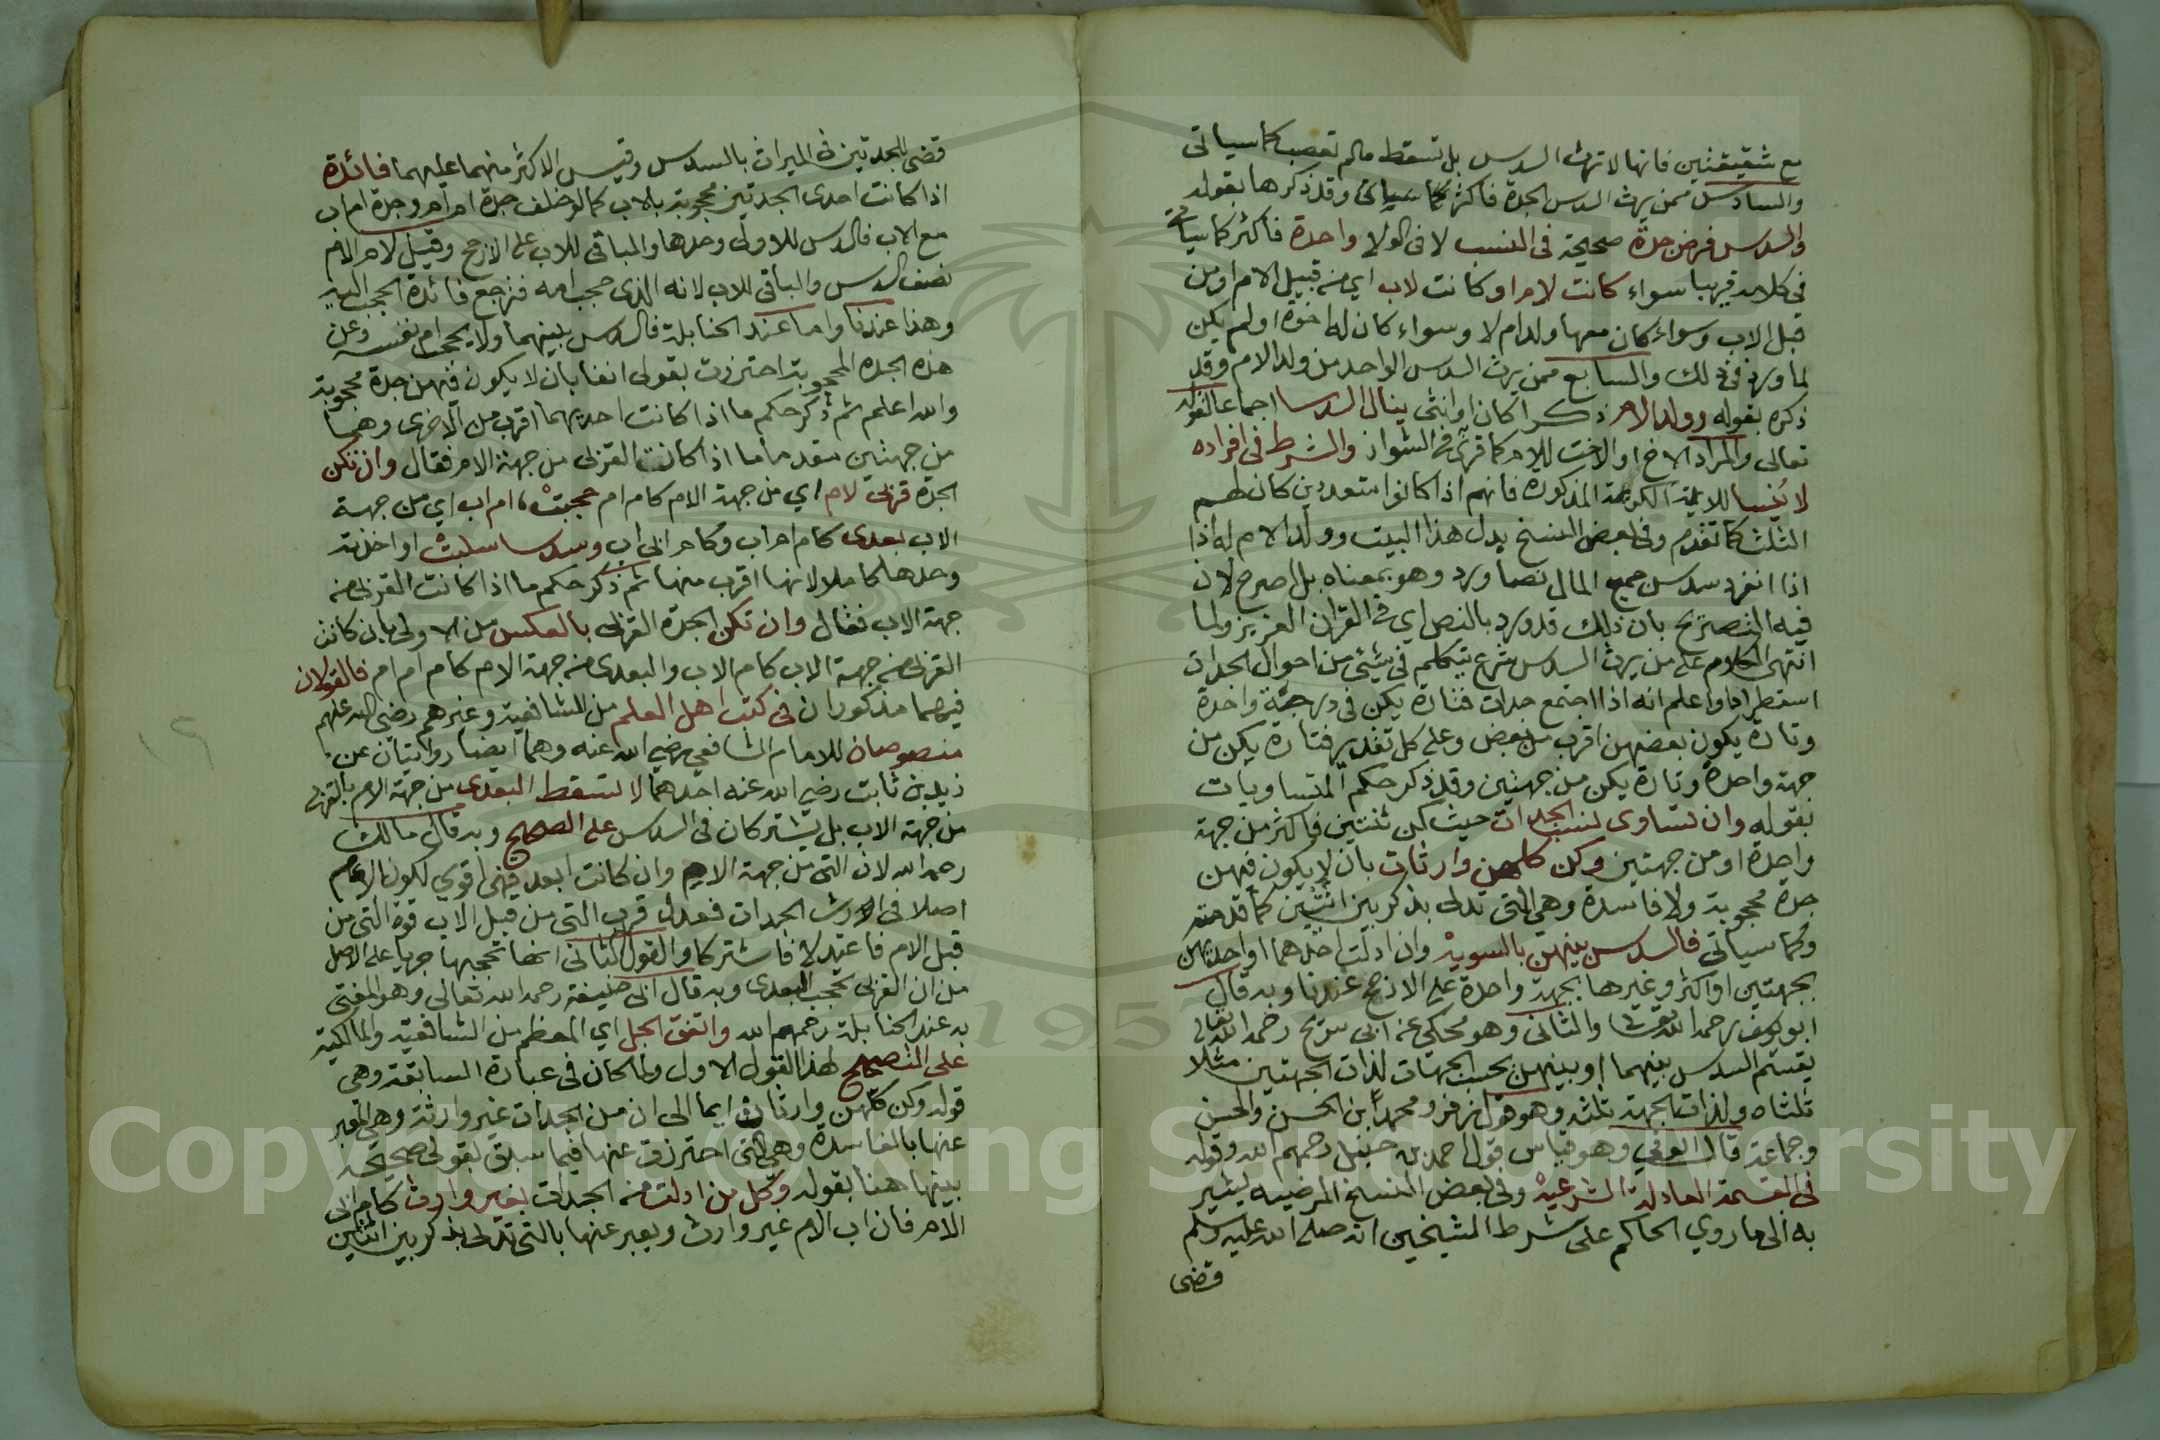 مع شقيقتين فانها لا ترث السدس بل تسقط مالم تعصب كما سياتى
والسادس ممن يرث السدس الجدة فاكثر كما سياتى وقد ذكرها بقوله
والسدس فرض جدة صحيحة فى النسب لا فى الولاء واحدة فاكثر كما سياتى
فى كلامه قريبا سواء كانت لام او كانت لاب اي من قبيل الام او من
قبل الاب وسواء كان معها ولد ام لا وسواء كان له اخوة او لم يكن
لما ورد فى ذلك والسابع ممن يرث السدس الواحد من ولد الام وقد
ذكره بقوله وولد الام ذكرا كان او انثى ينال السدسا اجماعا لقوله
تعالى والمراد الاخ او الاخت للام كما قرئ فى الشواذ والشرط فى افراده
لا ينسا للاية الكريمة المذكورة فانهم اذا كانوا متعددين كان لهم
الثلث كما تقدم وفى بعض النسخ بدل هذا البيت وولد الام له اذا
اذا انفرد سدس جميع المال نصا ورد وهو بمعناه بل اصرح لان
فيه التصريح بان ذلك قد ورد بالنص اي فى القران العزيز ولما
انتهى الكلام على من يرث السدس شرع يتكلم فى شيئ من احوال الجدات
استطرادا واعلم انه اذا اجتمع جدات فتارة يكن فى درجة واحدة
وتارة يكون بعضهن اقرب من بعض وعلى كل تقدير فتارة يكن من
جهة واحدة وتارة يكن من جهتين وقد ذكر حكم المتساويات
بقوله وان تساوى نسب الجدات حيث كن ثنتين فاكثر من جهة
واحدة او من جهتين وكن كلهن وارثات بان لا يكون فيهن
جدة محجوبة ولا فاسدة وهى التى تدلى بذكر بين انثيين كما قدمته
وكما سياتى فالسدس بينهن بالسوية وان ادلت احداهما او احداهن
بجهتين او اكثر وغيرها بجهة واحدة على الارجح عندنا وبه قال
ابو يوسف رحمه الله والثانى وهو محكى عن ابى سريج رحمه الله تعالى
يقسم السدس بينهما او بينهن بحسب الجهات لذات الجهتين مثلا
ثلثاه ولذات الجهة ثلثه وهو قول زفر ومحمد بن الحسن والحسن
وجماعة قال الونى وهو قياس قول احمد بن حنبل رحمهم الله وقوله
فى القسمة العادلة الشرعية وفى بعض النسخ المرضيه يشير
به الى ما روي الحاكم على شرط الشيخين انه صلى الله عليه وسلم
قضى
قضى للجدتين فى الميراث بالسدس وقيس الاكثر منهما عليهما فائدة
اذا كانت احدى الجدتين محجوبة بالاب كما لو خلف جدة ام ام وجدة ام اب
مع الاب فالسدس للاولى وحدها والباقى للاب على الارجح وقيل لام الام
نصف السدس والباقى للاب لانه الذى حجب امه فترجع فائدة الحجب اليه
وهذا عندنا واما عند الحنابلة فالسدس بينهما ولا يحجب ام نفسه وعن
هذه الجدة المحجوبة احترزت بقولى انفا بان لا يكون فيهن جدة محجوبة
والله اعلم ثم ذكر حكم ما اذا كانت احديهما اقرب من الاخرى وهما
من جهتين مقدما ما اذا كانت القربى من جهة الام فقال وان تكن
الجدة قربى لام اي من جهة الام كام ام حجبت ام اب اي من جهة
الاب بعدى كام ام اب وكام ابى اب وسدسا سلبت او اخذته
وحدها كاملا لانها اقرب منها ثم ذكر حكم ما اذا كانت القربى من
جهة الاب فقال وان تكن الجدة القربى بالعكس من الاولى بان كانت
القربى من جهة الاب كام الاب والبعدى من جهة الام كام ام ام فالقولان
فيهما مذكوران فى كتب اهل العلم من الشافعية وغيرهم رضى الله عنهم
منصوصان للامام الشافعي رضي الله عنه وهما ايضا روايتان عن
زيد بن ثابت رضي الله عنه احدهما لا تسقط البعدى من جهة الام بالقربى
من جهة الاب بل يشتركان فى السدس على الصحيح وبه قال مالك
رحمه الله لان التى من جهة الام وان كانت ابعد فهى اقوي لكون الام
اصلا فى ارث الجدات فعدل قرب التى من قبل الاب قوة التى من
قبل الام فاعتدلا فاشتركا والقول الثانى انها تحجبها جريا على الاصل
من ان القربى تحجب البعدى وبه قال ابى حنيفة رحمه الله تعالى وهو المفتى
به عند الحنابلة رحمهم الله واتفق الجل اي المعظم من الشافعية والمالكية
على التصحيح لهذا القول الاول ولما كان فى عبارة السابقة وهى
قوله وكن كلهن وارثات ايما الى ان من الجدات غير وارثة وهى المعبر
عنها بالفاسدة وهى التى احترزت عنها فيما سبق بقولى صحيحة
بينها هنا بقوله وكل من ادلت من الجدات بغير وارث كام ابى
الام فان اب الام غير وارث ويعبر عنها بالتى تدلى بذكر بين انثيين
Copyright © King Saud University
1957